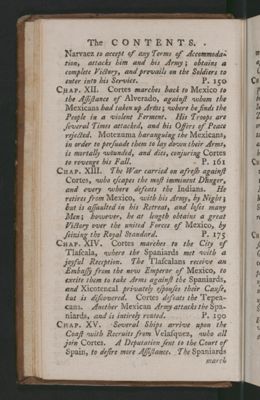 The CONTENTS.
Narvaez to accept of any Terms of Accommoda-
tion, attacks him and his Army; obtains a
complete Victory, and prevails on the Soldiers to
enter into his Service. P. 150
CHAP. XII. Cortes marches back to Mexico to
the Aſſiſtance of Alverado, againſt whom the
Mexicans had taken up Arms; where he finds the
People in a violent Ferment. His Troops are
ſeveral Times attacked, and his Offers of Peace
rejected. Motezuma haranguing the Mexicans,
in order to perſuade them to lay down their Arms,
is mortally wounded, and dies, conjuring Cortes
to revenge his Fall. P. 161
CHAP. XIII. The War carried on afreſh againſt
Cortes, who eſcapes the moſt imminent Danger,
and every where defeats the Indians. He
retires from Mexico, with his Army, by Night;
but is aſſaulted in his Retreat, and loſes many
Men; however, he at length obtains a great
Victory over the united Forces of Mexico, by
ſeizing the Royal Standard. P. 175
CHAP. XIV. Cortes marches to the City of
Tlaſcala, where the Spaniards met with a
joyful Reception. The Tlaſcalans receive an
Embaſſy from the new Emperor of Mexico, to
excite them to take Arms againſt the Spaniards,
and Xicotencal privately eſpouſes their Cauſe,
but is diſcovered. Cortes defeats the Tepea-
cans. Another Mexican Army attacks the Spa-
niards, and is intirely routed. P. 190
CHAP. XV. Several Ships arrive upon the
Coaſt with Recruits from Velaſquez, who all
join Cortes. A Deputation ſent to the Court of
Spain, to deſire more Aſſiſtance. The Spaniards
march